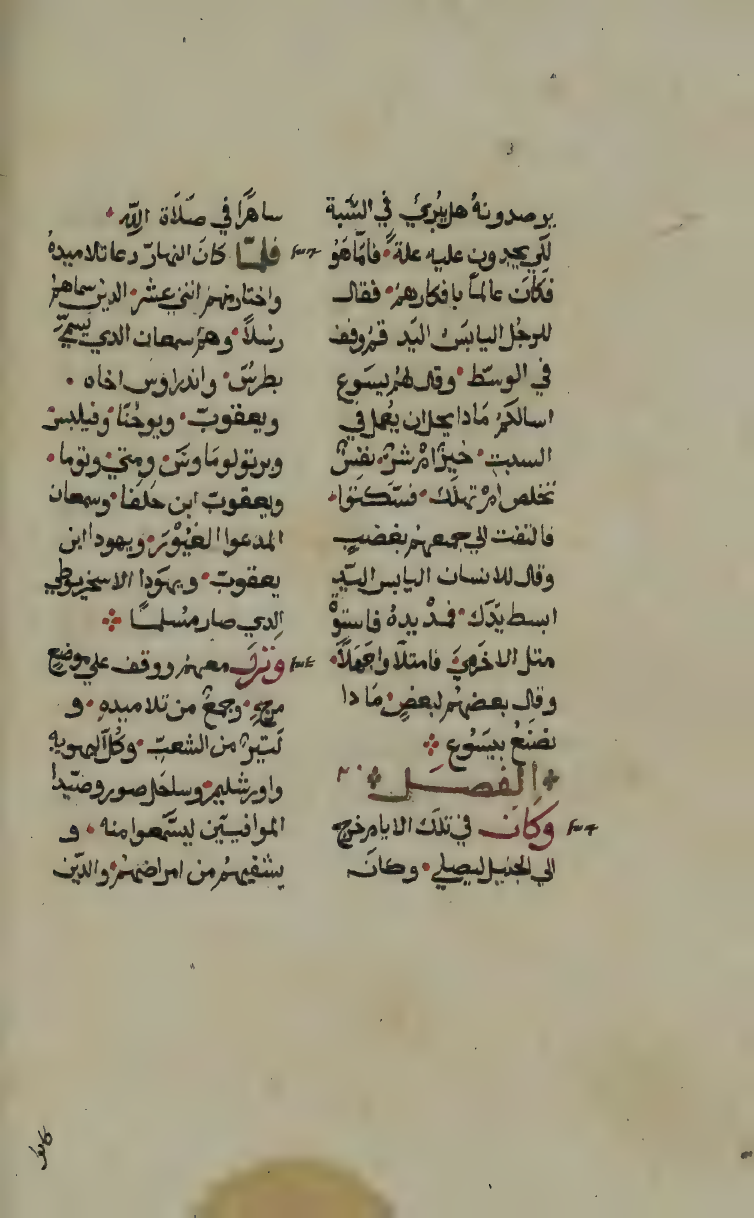 يرصدونهُ هل يُبرئ في السَّبة
لكي يجدون عليه علةً • فامَّا هوُ
فكانَ عالماً بافكارهمْ • فقالـ
للرجُل اليابسَ اليَد قمْ وقف
في الوسَط • وقال لهُم يسَوع
اسالكمْ مَادا يحل ان يُعمل في
السبت • خيرًا امْ شرٌ • نفسٌ
تخلص امْ تهلكَ • فسَكتوا •
فالتفت الي جميعهُم بغضبٍ
وقال للانسان اليابس اليَدِ
ابسط يدَك • فمدْ يدهُ فاستوْ
متل الاخرَيَ فامتلاَوا جَهلاً •
وقال بعضهُم لبعضٍ مَا دا
نصنعُ بيسَوع
الفصـــل ٢٠
وَكانَ في تلكَ الايام خرج
الي الجبَل ليصلي • وكانَـ
ساهرًا في صلاَة اللّه •
فلمَّا كانَ النهارّ دعا تلاميدهُ
واختار منهمْ اتني عشر • الدين سماهمْ
رسُلاً • وهمْ سمعان الدي يسَميّ
بطرسَ • واندراوس اخاه •
ويعقوبَ • ويوحُنَّا • وفيلبسَ
وبرتولومَاوسَ • ومتي • وتوما •
ويعقوبَ ابن حَلفا • وسمعان
المدعوا الغيُوْرَ • ويهودا ابن
يعقوبَ • ويهوَدا الاسخريوطي
الدي صار مُسلمــًا
وَنزلَ معهمْ ووقف علي موضعٍ
مرجٍ • وجمعٌ من تلاميدهِ • و
كَتيرٌ من الشعبَ • وكُل اليهوديه
واورشليمْ وساحَل صور وصَيدا
الموافيَين ليسَمعوا منه • و
يشفيهُم من امراضهمْ والدَين